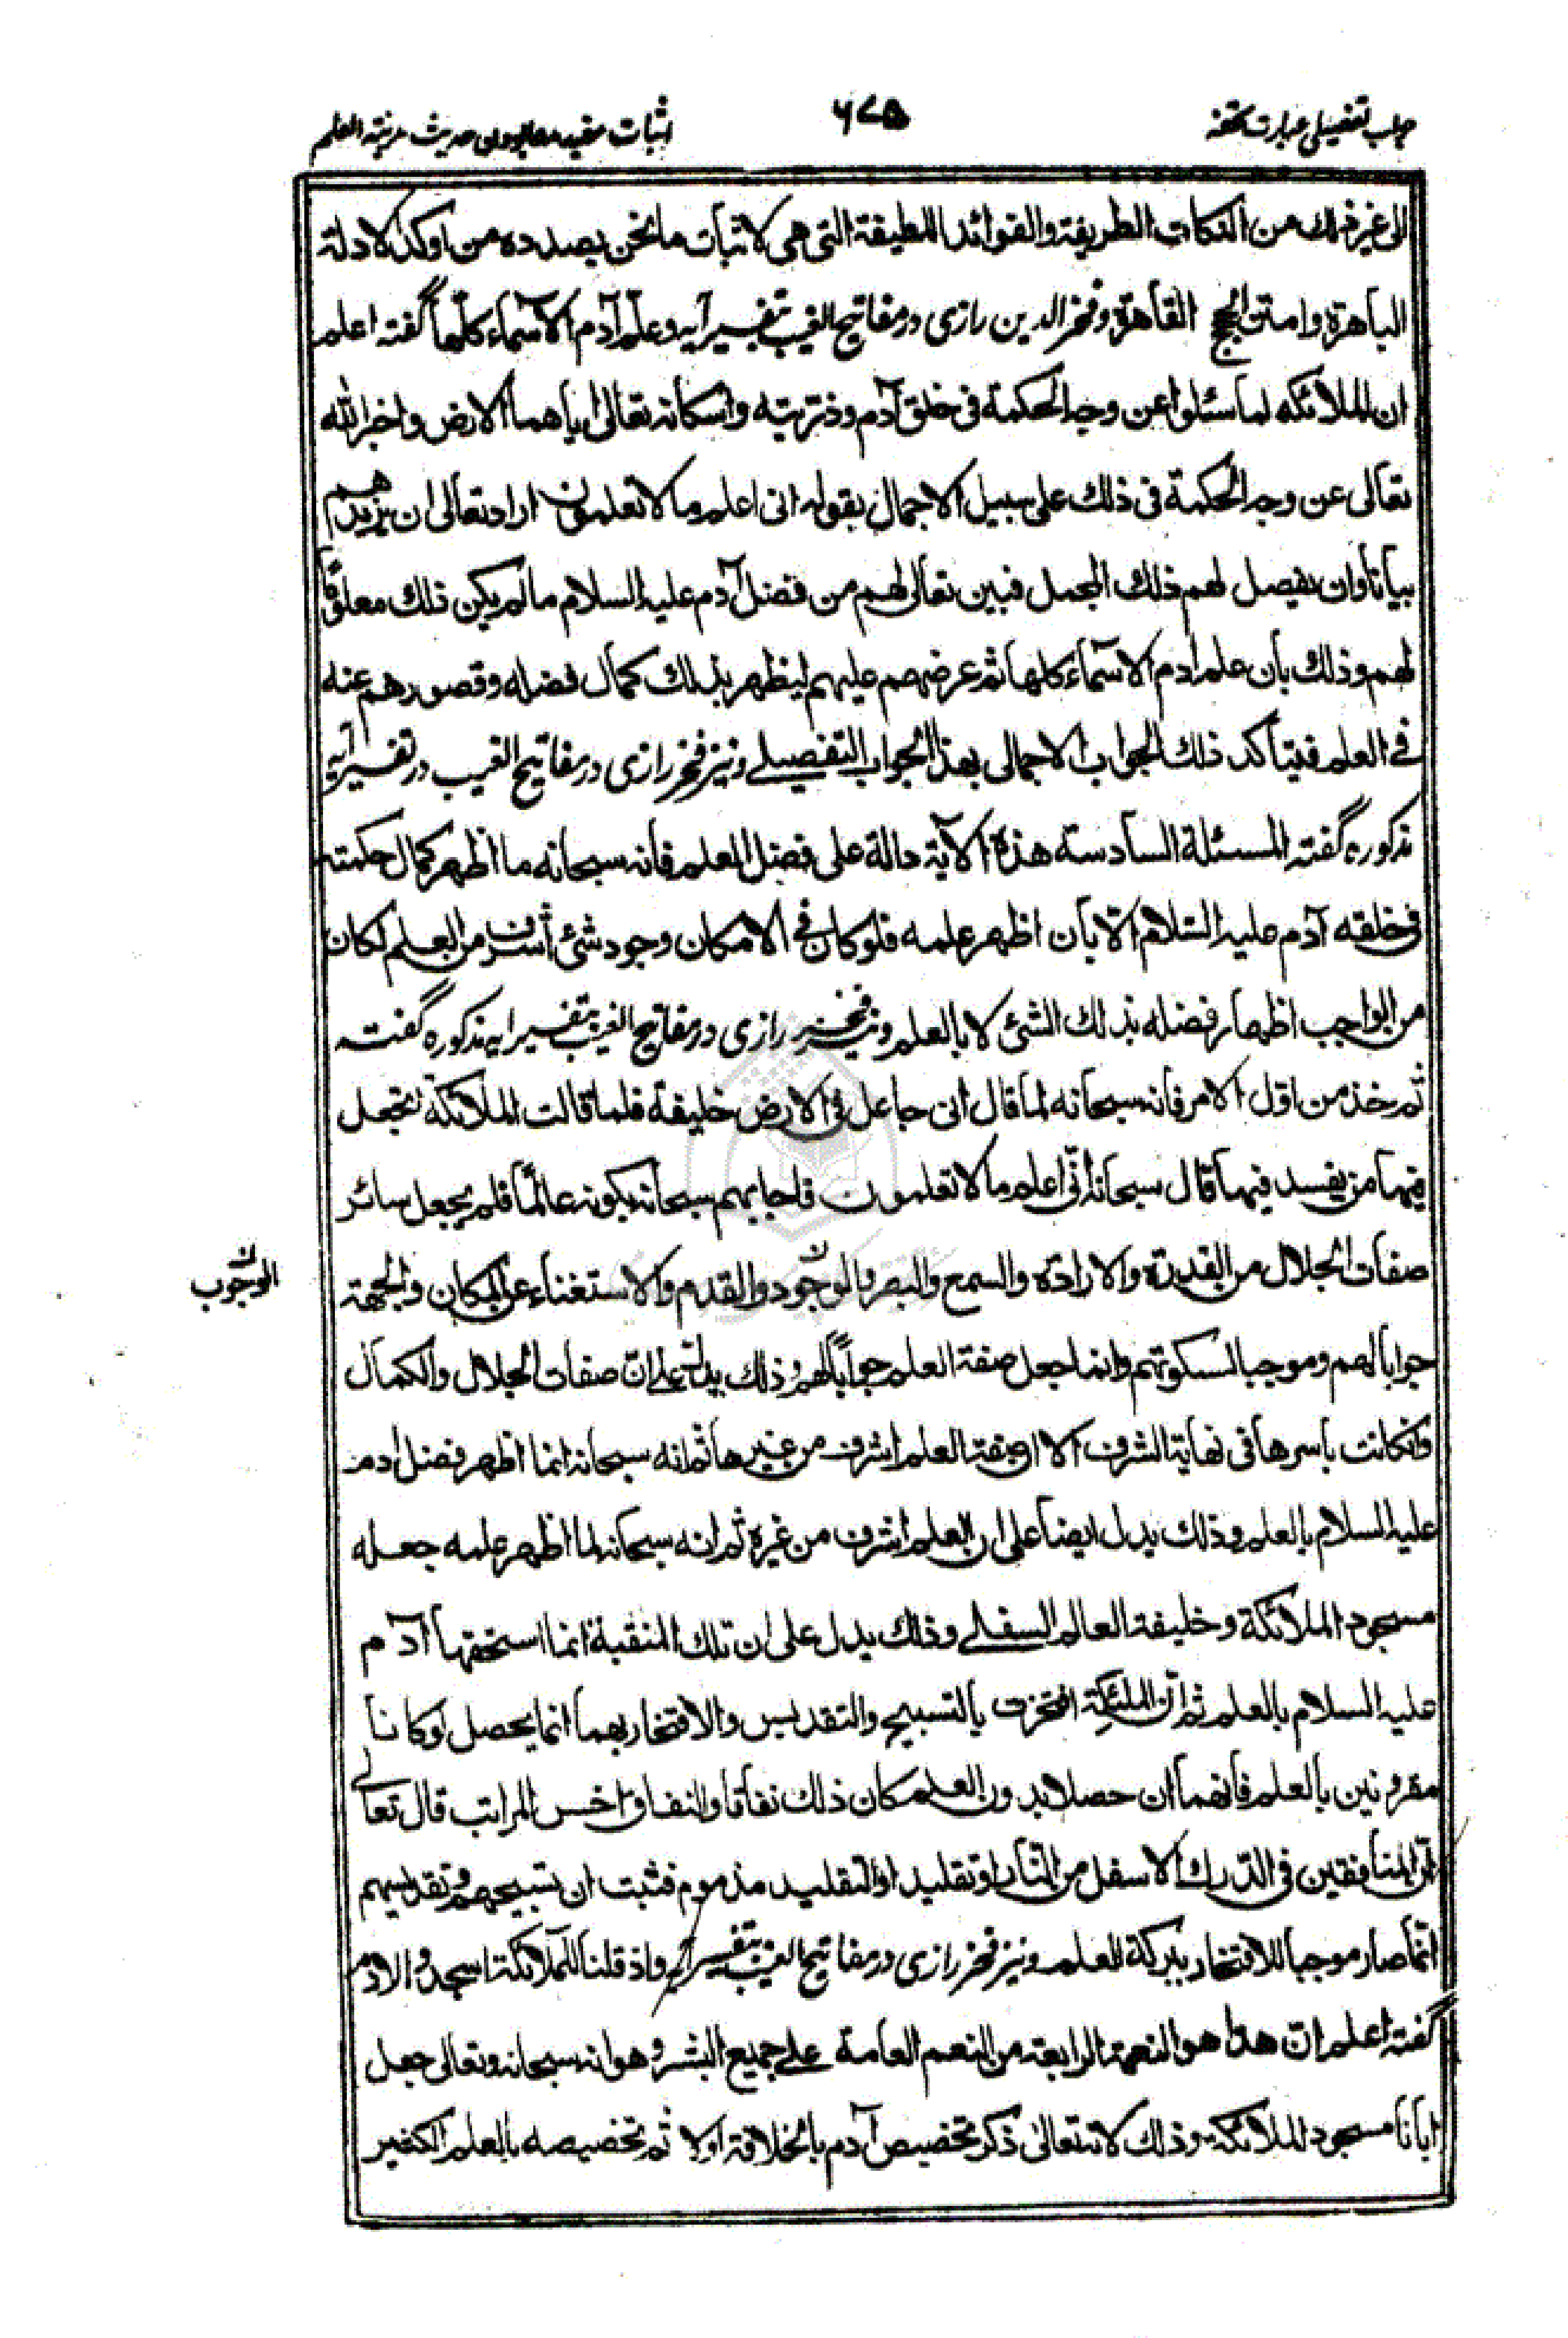 جواب تفصیلی عبارت تحفه
۶۷۵
اثبات مفید مطلوب حدیث مدینة العلم
الی غیر ذلك من النکات الطریفة والفوائد اللطیفة التی هی لاثبات ما نحن بصدده من اوکد الادلة
الباهرة وامتن الحجج القاهرة و فخر الدین رازی در مفاتیح الغیب بتفسیر آیه وعلّم آدم الاسماء کلّها گفته اعلم
ان الملائکه لما سئلوا عن وجه الحکمة فی خلق آدم وذرّیته واسکانه تعالی ایاهما الارض واخبر الله
تعالی عن وجه الحکمة فی ذلك علی سبیل الاجمال بقوله انی اعلم ما لا تعلمون اراد تعالی ان یزیدهم
بیانا وان یفصل لهم ذلك المجمل فبین تعالی لهم من فضل آدم علیه السلام ما لم یکن ذلك معلوماً
لهم وذلك بان علم ادم الاسماء کلها ثم عرضهم علیهم لیظهر بذلك کمال فضله وقصورهم عنه
فی العلم فیتأکد ذلك الجواب الاجمالی بهذا الجواب التفصیلے و نیز فخر رازی در مفاتیح الغیب در تفسیر آیه
مذکوره گفته المسئلة السادسة هذه الآیة دالة علی فضل العلم فانه سبحانه ما اظهر کمال حکمته
فی خلقه آدم علیه السّلام الّا بان اظهر علمه فلو کان فی الامکان وجود شئ أشرف من العلم لکان
من الواجب اظهار فضله بذلك الشئ لا بالعلم و نیز فخر رازی در مفاتیح الغیب بتفسیر ایه مذکوره گفته
ثم خذ من اوّل الامر فانه سبحانه لما قال انی جاعل فی الارض خلیفة فلما قالت الملائکة أتجعل
فیها من یفسد فیها قال سبحانه انّی اعلم ما لا تعلمون فاجابهم سبحانه بکونه عالماً فلم یجعل سائر
صفات الجلال من القدرة والارادة والسمع والبصر والوجود والقدم والاستغناء عن المکان والجهة
الوجوب
جوابا لهم وموجبا لسکوتهم وانما جعل صفة العلم جواباً لهم وذلك یدل علی انّ صفات الجلال والکمال
وان کانت باسرها فی نهایة الشرف الا ان صفة العلم اشرف من غیرها ثم انه سبحانه انما اظهر فضل ادم
علیه السلام بالعلم وذلك یدل ایضا علی ان العلم اشرف من غیره ثم انه سبحانه لما اظهر علمه جعله
مسجود الملائکة وخلیفة العالم السفلے وذلك یدل علی ان تلك المنقبة انما استحقها آدم
علیه السلام بالعلم ثم انّ الملئکة افتخرت بالتسبیح والتقدیس والافتخار بهما انما یحصل لو کانا
مقرونین بالعلم فانهما ان حصلا بدون العلم کان ذلك نفاقا والنفاق اخس المراتب قال تعالی
انّ المنافقین فی الدّرك الاسفل من النّار او تقلید او التقلید مذموم فثبت ان تسبیحهم وتقدیسهم
انّما صار موجبا للافتخار ببرکة العلم و نیز فخر رازی در مفاتیح الغیب بتفسیر آیه واذ قلنا للملائکة اسجدوا لادم
گفته اعلم انّ هذا هو النعمة الرابعة من النعم العامة علے جمیع البشر و هو انه سبحانه وتعالی جعل
ابانا مسجود الملائکة وذلك لانه تعالی ذکر تخصیص آدم بالخلافة اولا ثم تخصیصه بالعلم الکثیر